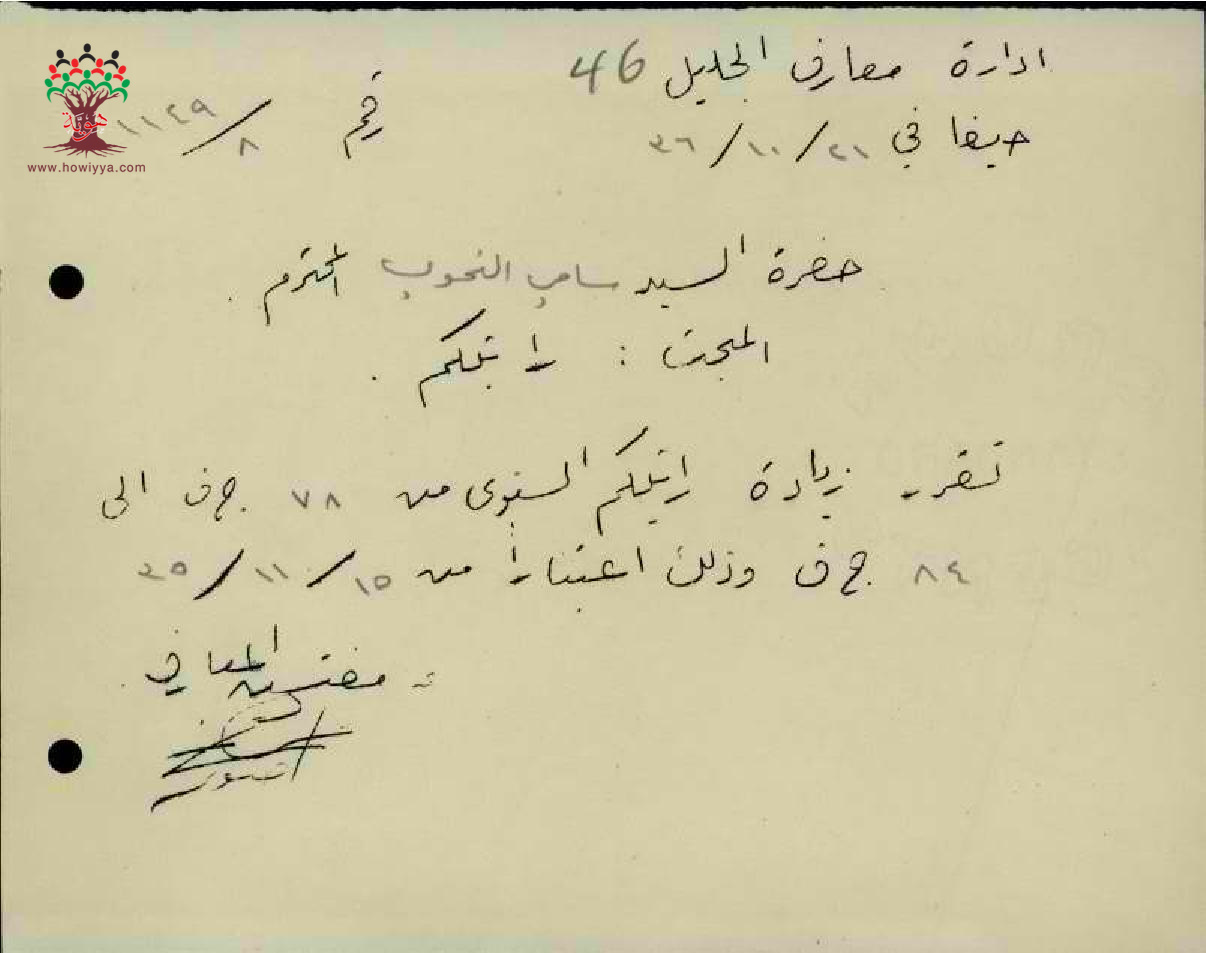 ادارة معارف الجليل 46
حيفا في ٢١/١٠/٣٦ رقم ٨/١١٢٩
حضرة السيد سامي النحوي المحترم .
المبحث : راتبكم .
تقرر زيادة راتبكم السنوى من ٧٨ ج ف الى
٨٤ ج ف وذلك اعتبارا من ١٥/١١/٣٥
مفتش المعارف
هوية
www.howiyya.com